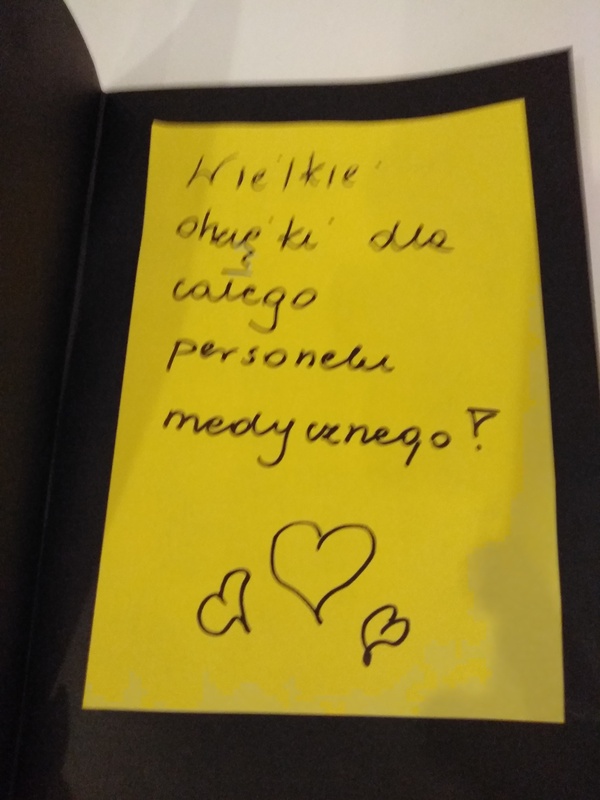 Wielkie
dzięki dla
całego
personelu
medycznego!